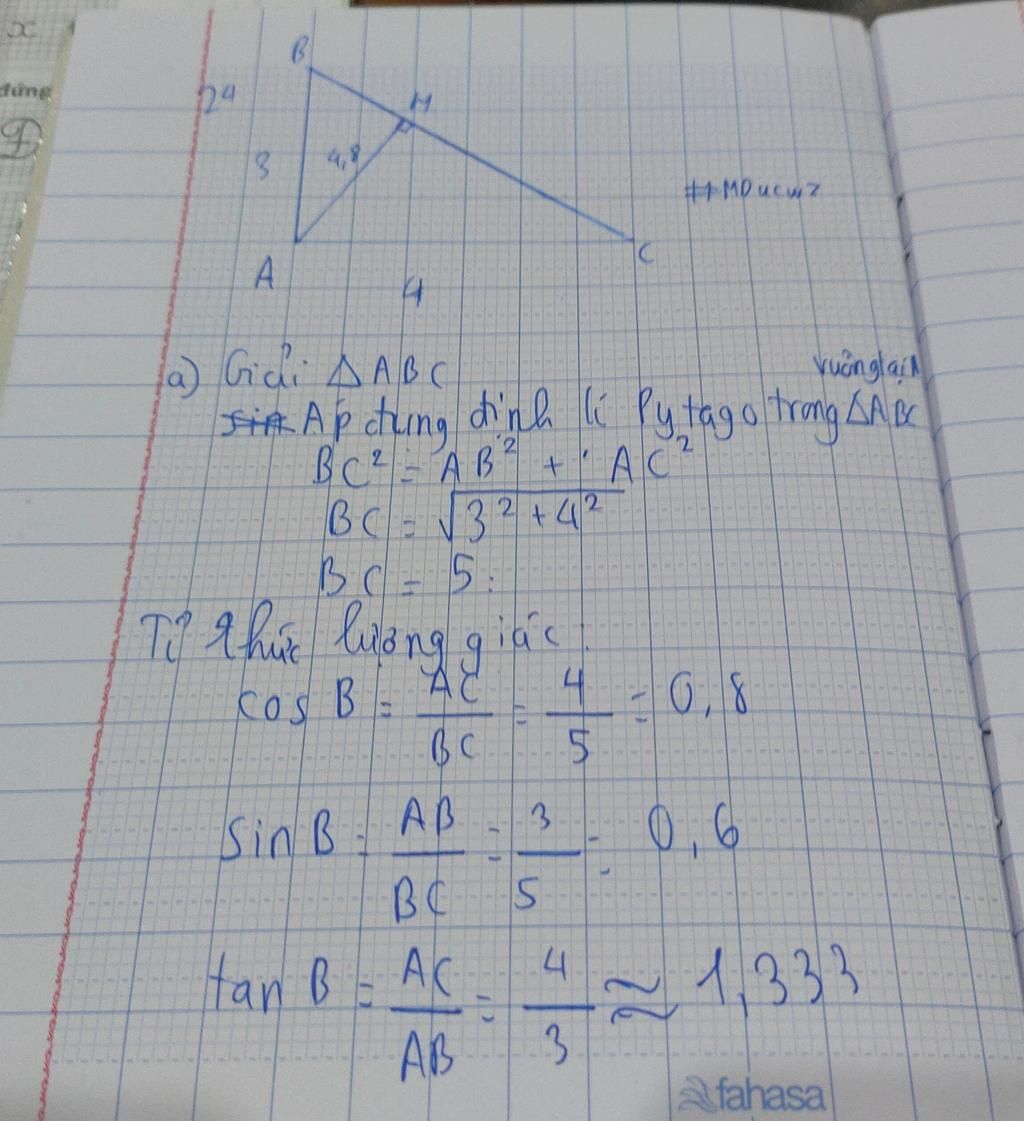 x
đứng
24
B
H
3
4,8
A
4
C
a) Giải △ABC
vuông tại A
Áp dụng định lí Pytago trong △ABC
BC² = AB² + AC²
BC = √3² + 4²
BC = 5.
Tỉ thức lượng giác:
cos B = AC/BC = 4/5 = 0,8
sin B = AB/BC = 3/5 = 0,6
tan B = AC/AB = 4/3 ≈ 1,333
fahasa